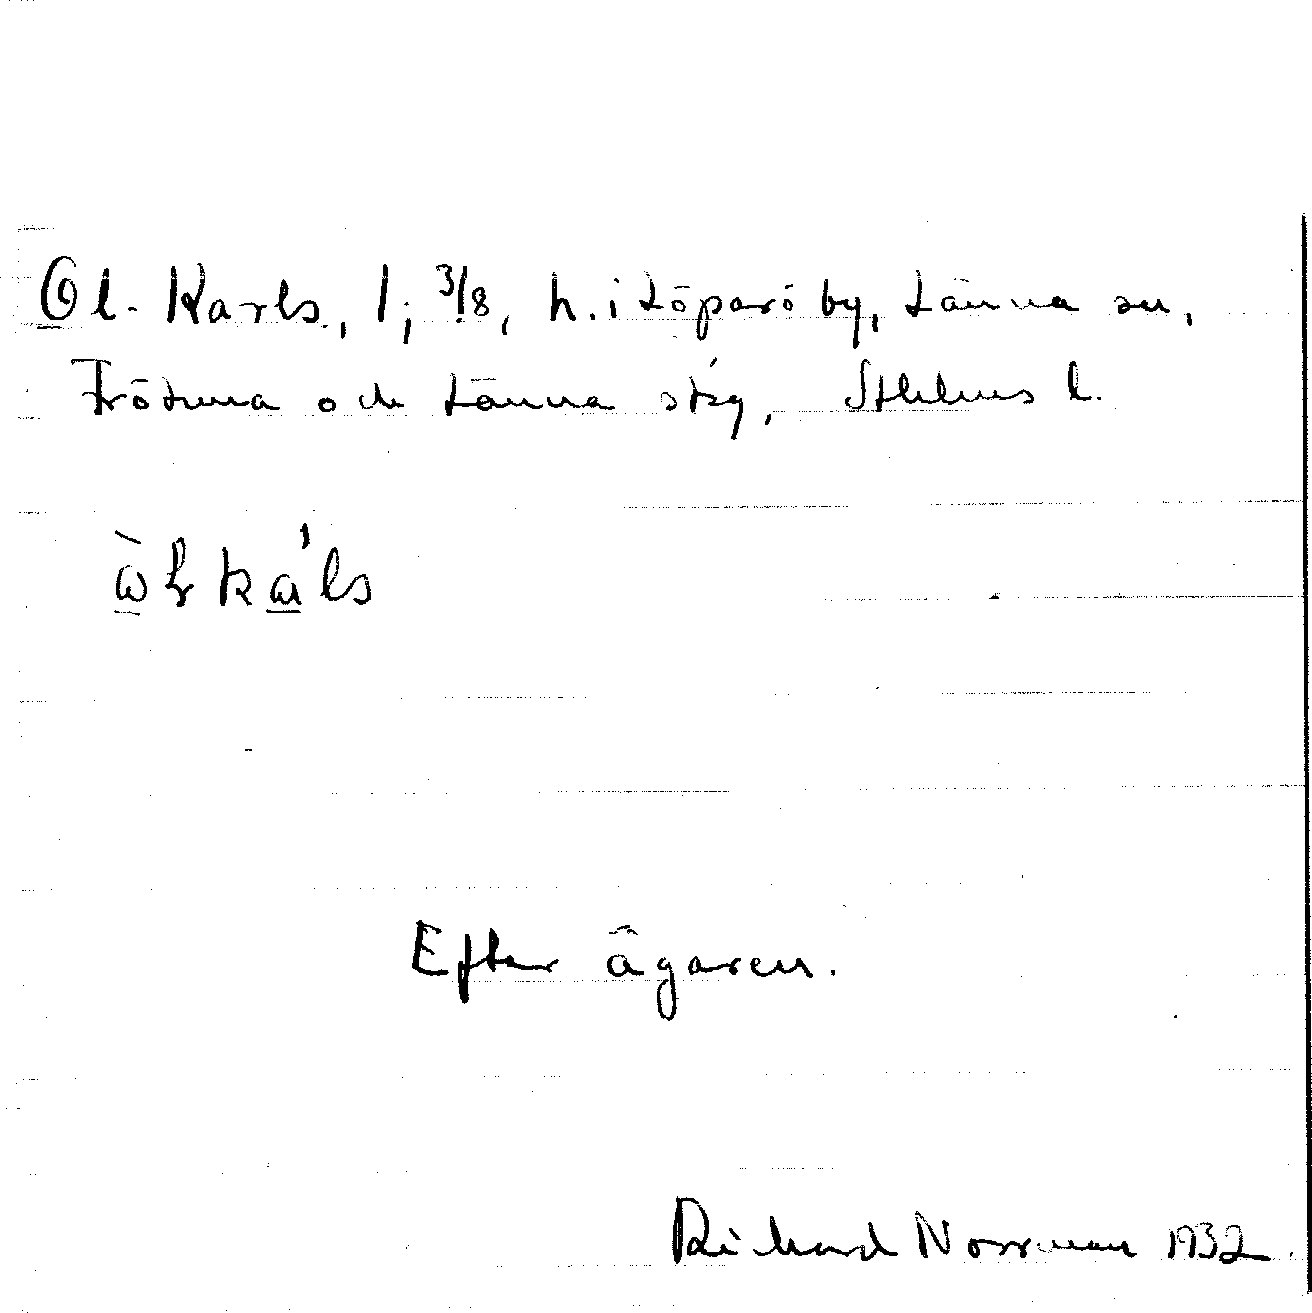 Ol-Karls, 1; 3/8, h. i Löparö by, Länna sn,
Frötuna och Länna skg, Sthlms l.
Efter ägaren.
Richard Norrman 1932.